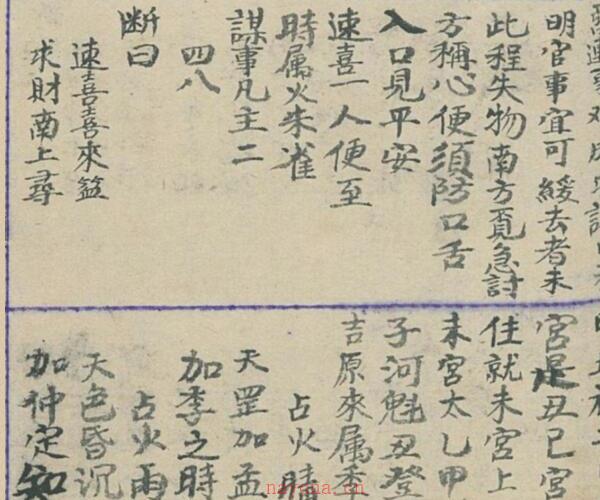 明官事宜可緩去者未
此程失物南方覓急討
方稱心便須防口舌
入口見平安
速喜一人便至
時属火朱雀
謀事凡主二
四八
断曰
速喜喜來盆
求財南上尋
宮是丑巳宮
住就未宮上
未宮太乙甲
子河魁丑登
吉原來属
占火晴
天罡加孟
加季之時
占火雨
天色昏沉
加仲定知